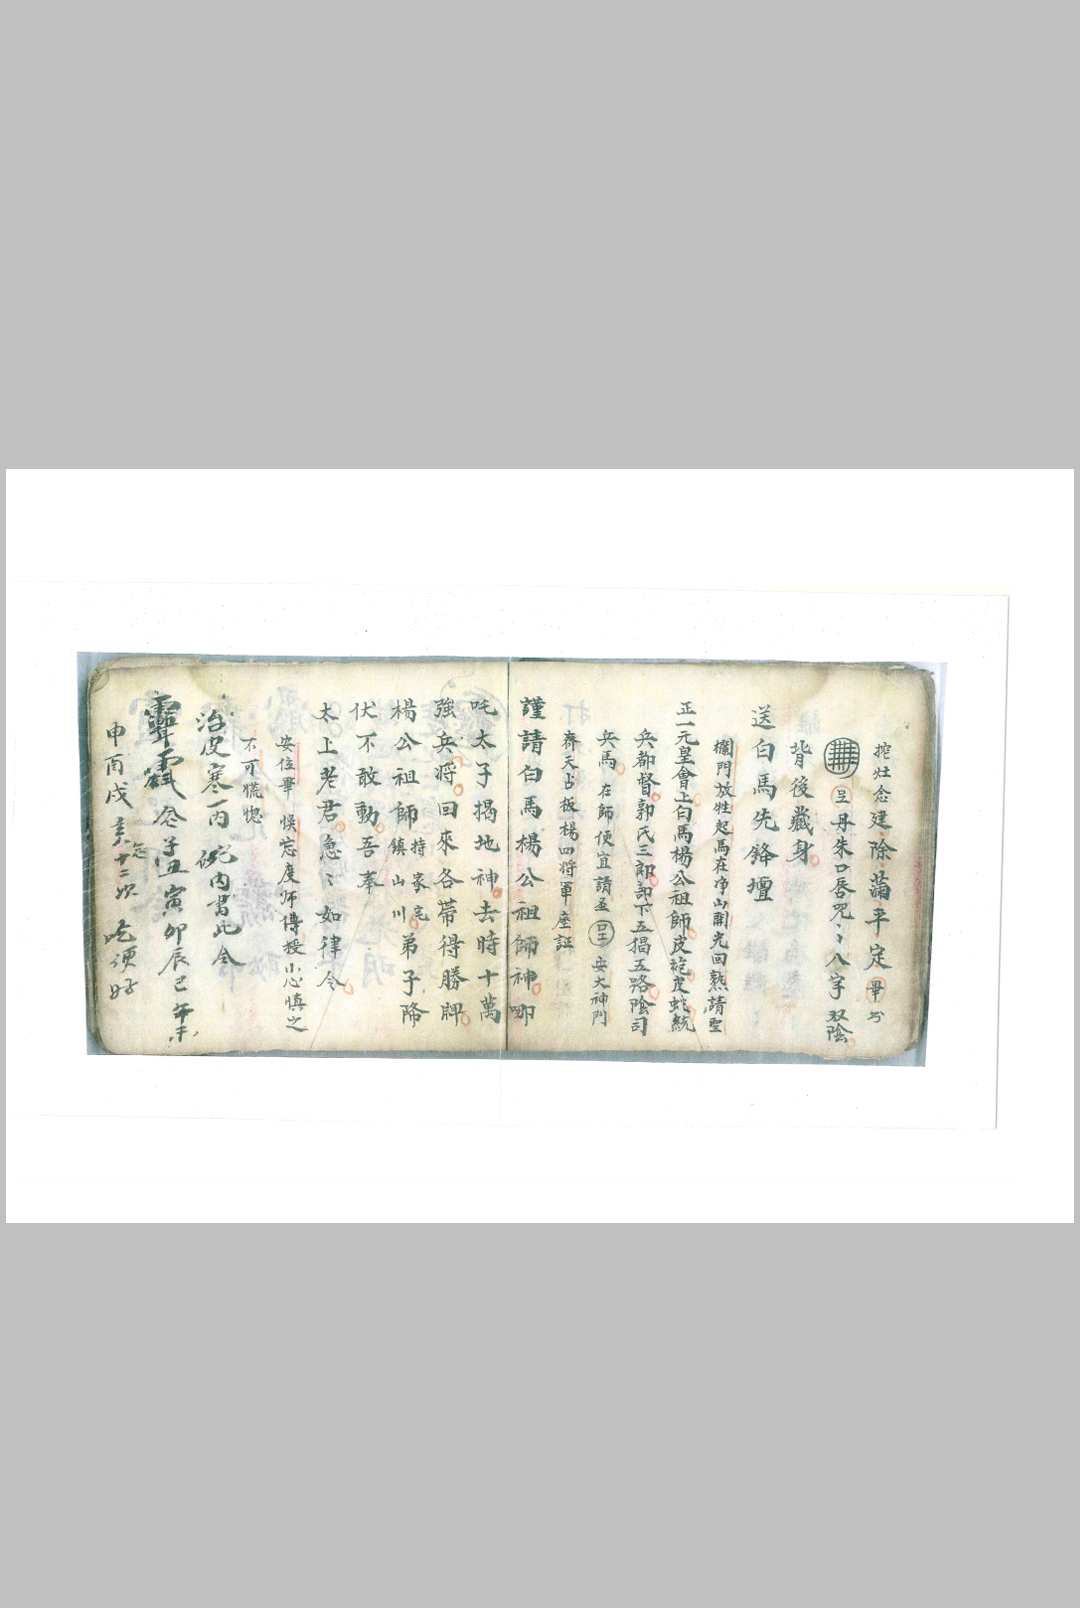 挖灶念建除蒲平定畢
呈丹朱口唇咒〻八字双陰
背後藏身
送白馬先鋒壇
欄門放牲起馬在净山開光回熟請聖
正一元皇會上白馬楊公祖師皮袍皮蛇統
兵都督郭氏三郎部下五猖五路陰司
兵馬 在師便宜請孟 安大神門
齊天占板楊四將軍座証
謹請白馬楊公祖師神哪
吒太子揭地神去時十萬
強兵將回來各帶得勝牌
楊公祖師持家宅鎮山川弟子降
伏不敢動吾奉
太上老君急〻如律令
安位畢 悞忘度师傳授小心慎之
不可慌惚
治皮寒丙 碗内書此令
子丑寅卯辰巳午未
申酉戌亥念十二次 吃便好